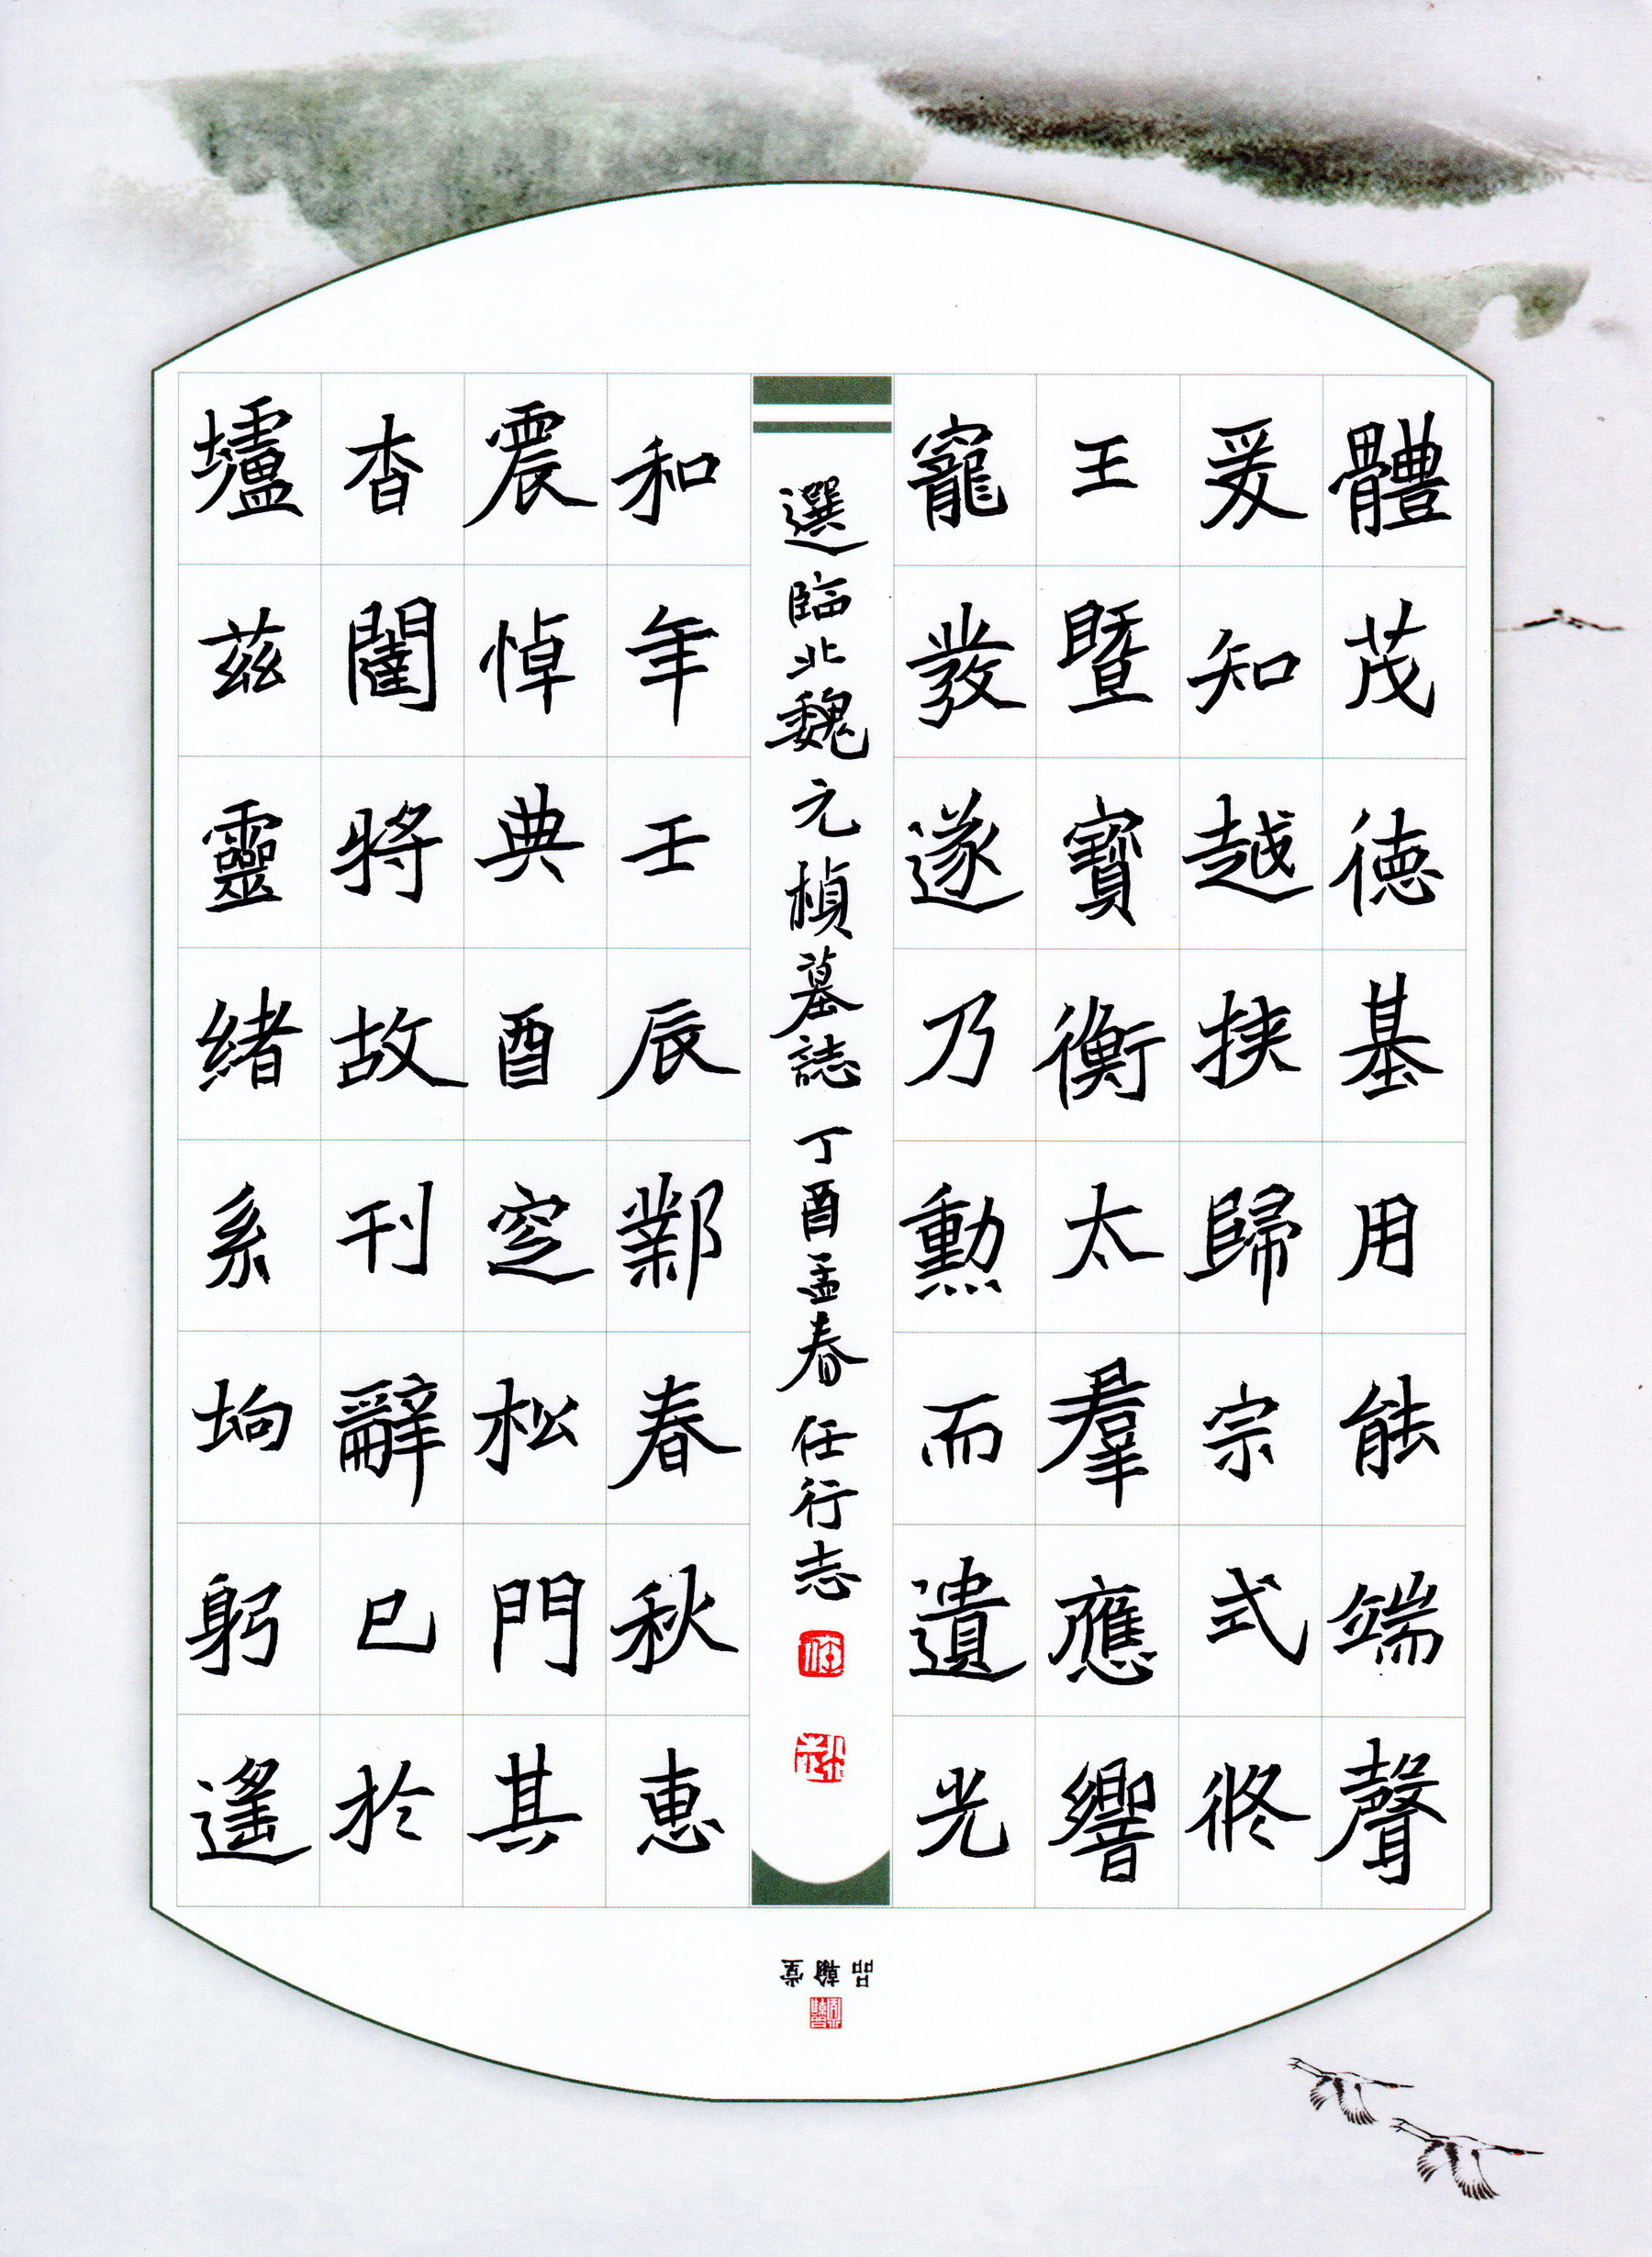 體茂德基用能端聲
爰知越挾歸宗式終
王暨寶衡太羣應響
寵發遂乃勳而遺光
選臨北魏元楨墓誌 丁酉孟春 任行志
和年壬辰鄴春秋惠
震悼典酉窆松門其
杳闔將故刊辭已於
壚茲靈緒系坰躬遙
品翰堂